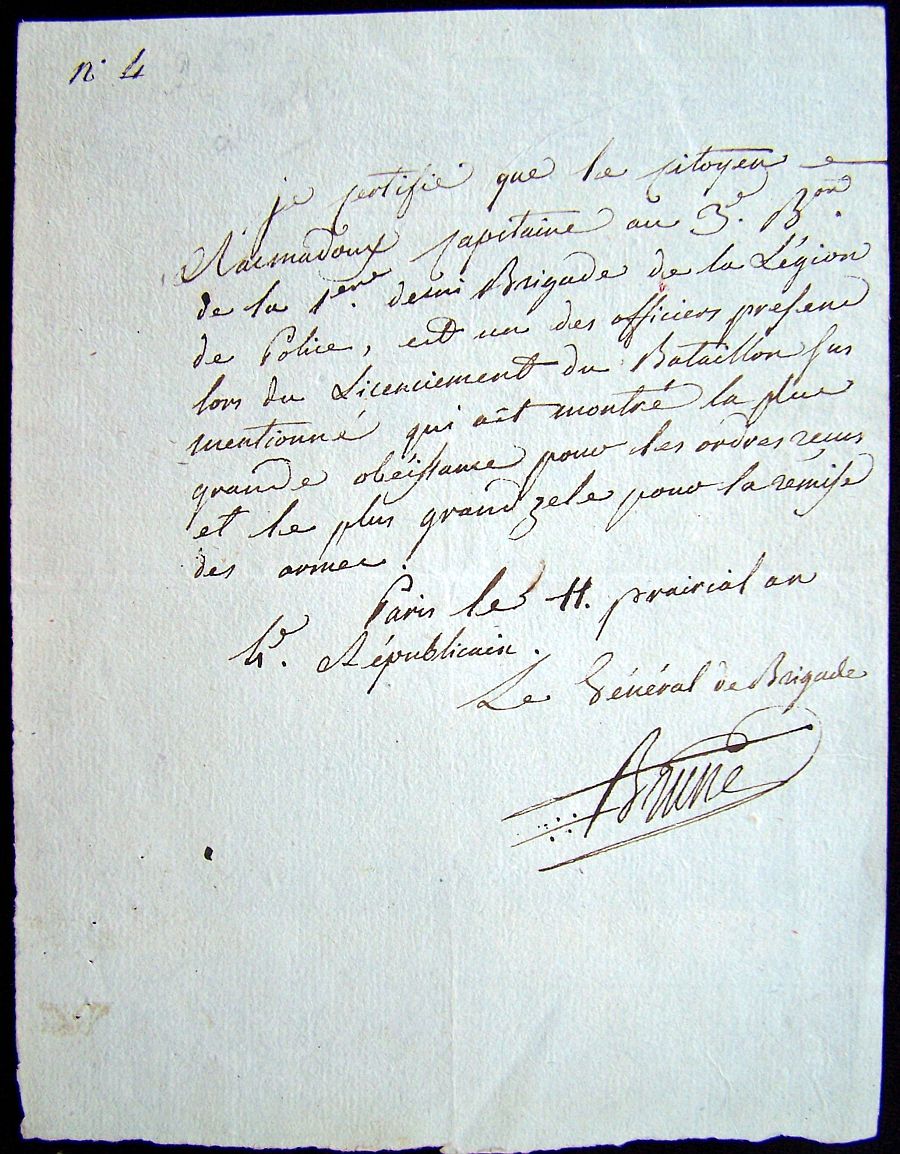 n° 4
je certifie que le citoyen
Ramadoux capitaine au 3e. Bon.
de la 1ere. demi Brigade de la Légion
de Police, est un des officiers present
lors du Licenciement du Bataillon sus
mentionné qui ait montré la plus
grande obéissance pour les ordres reçus
et le plus grand zele pour la remise
des armes.
Paris le 11. prairial an
4e. Républicain.
Le Général de Brigade
Brune